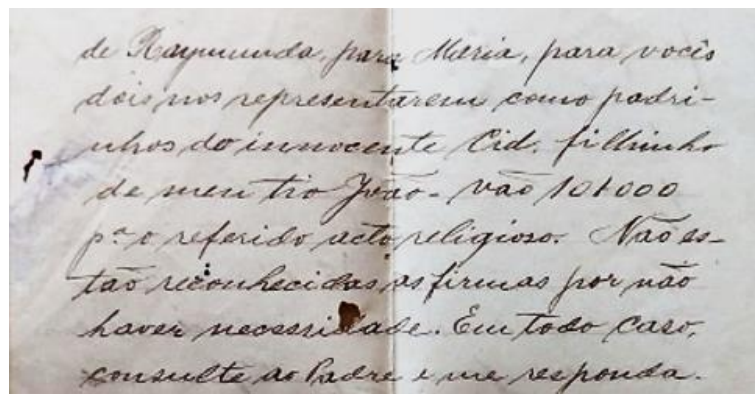 de Raymunda, para Maria, para vocês
dois nos representarem como padri-
nhos do innocente Cid. filhinho
de meu tio João - vão 10$000
pª o referido acto religioso. Não es-
tão reconhecidas as firmas por não
haver necessidade. Em todo caso,
consulte ao Padre e me responda.